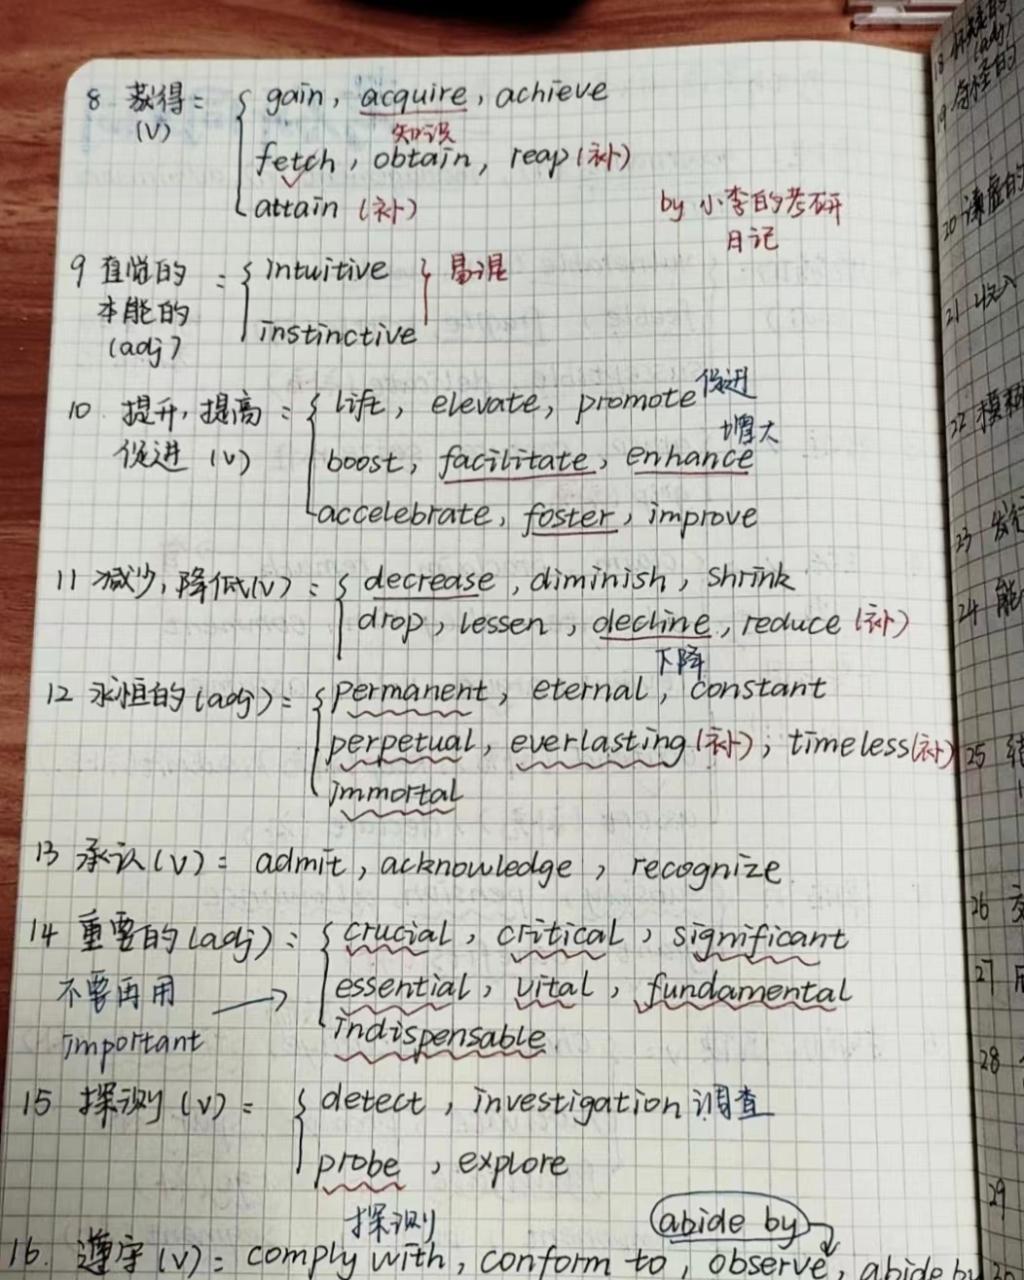 8 获得 = gain, acquire, achieve
(V) 知识
fetch, obtain, reap (补)
attain (补)
by 小李的考研
日记
9 直觉的 = intuitive 易混
本能的
(adj) instinctive
10. 提升, 提高 = lift, elevate, promote 促进
增大
促进 (V) boost, facilitate, enhance
accelebrate, foster, improve
11 减少, 降低(V) = decrease, diminish, shrink
drop, lessen, decline, reduce (补)
下降
12 永恒的 (adj) = permanent, eternal, constant
perpetual, everlasting (补), timeless (补)
immortal
13 承认 (V) = admit, acknowledge, recognize
14 重要的 (adj) = crucial, critical, significant
不要再用 → essential, vital, fundamental
important indispensable
15 探测 (V) = detect, investigation 调查
probe, explore
探测 abide by
16. 遵守 (V) = comply with, conform to, observe, abide by
19 奇怪的
20 谦虚的
21 收入
22 模糊
23 发行
24 能
25
26
27
28
29